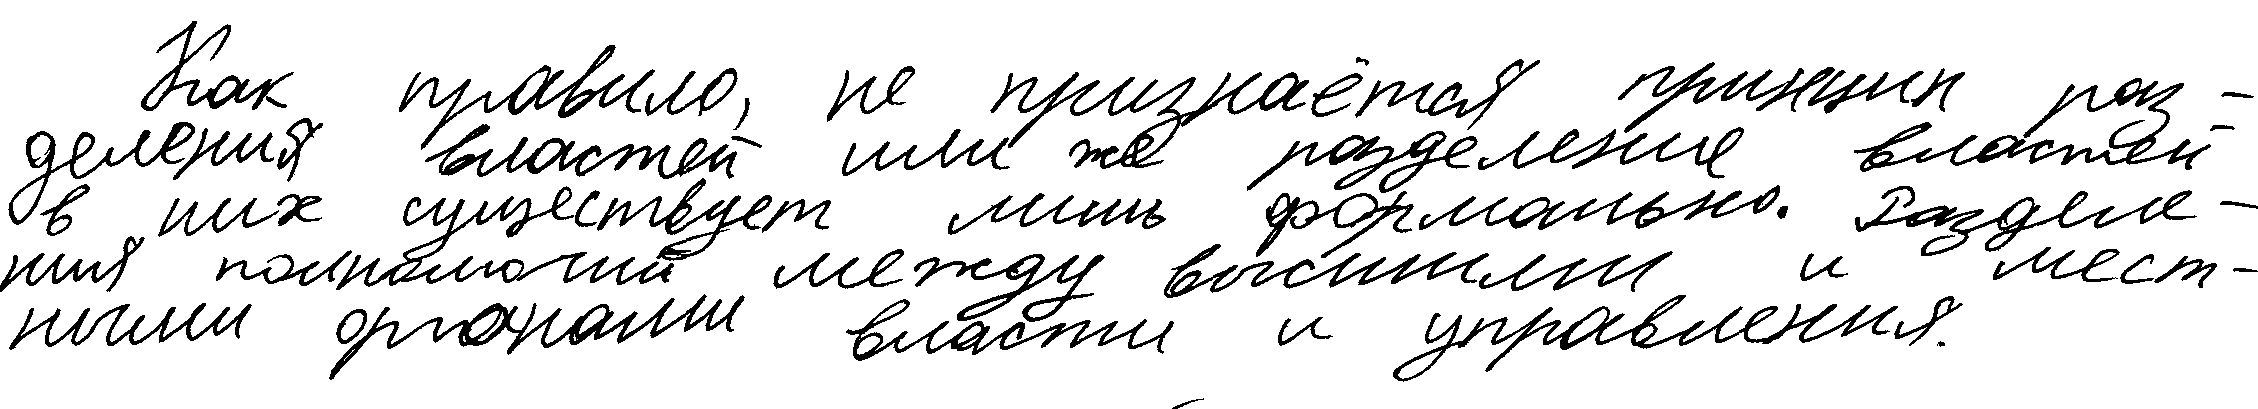 Как правило, не признаётся принцип раз-
деления властей или же разделение властей
в них существует лишь формально. Разделе-
ния полномочий между высшими и мест-
ными органами власти и управления.